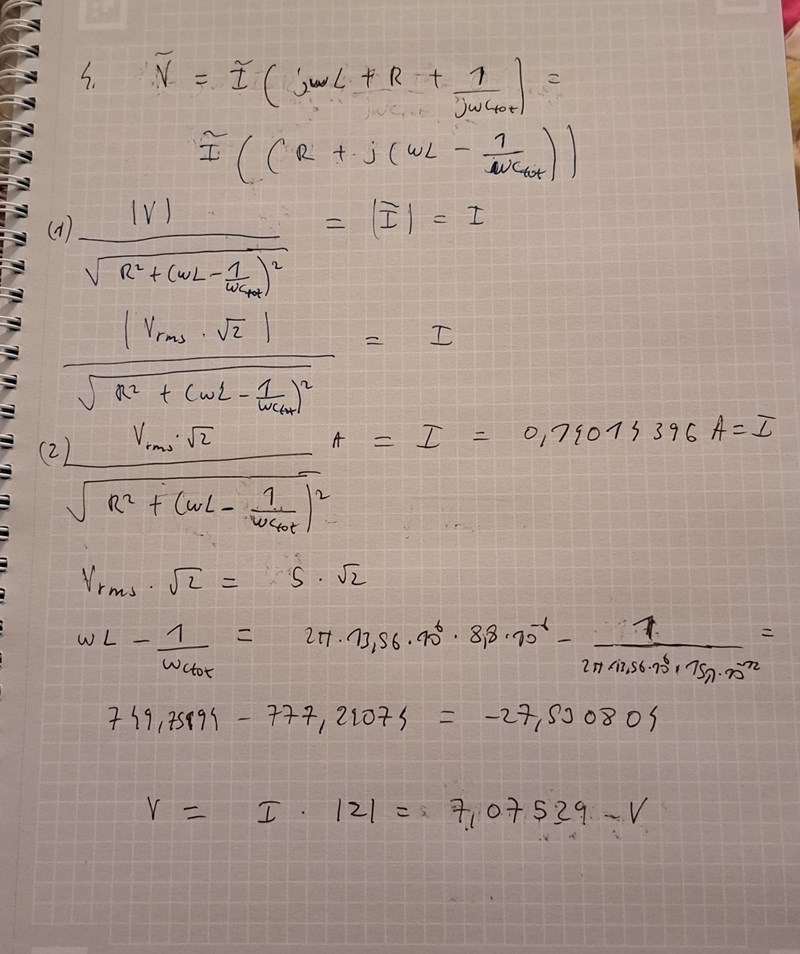 4. Ṽ = Ĩ ( jωL + R + 1/(jωC_tot) ) =
Ĩ ( ( R + j ( ωL - 1/(ωC_tot) ) )
(1) |V| / √(R² + (ωL - 1/(ωC_tot))²) = |Ĩ| = I
| V_rms · √2 | / √(R² + (ωL - 1/(ωC_tot))²) = I
(2) V_rms · √2 / √(R² + (ωL - 1/(ωC_tot))²) A = I = 0,19014396 A = I
V_rms · √2 = 5 · √2
ωL - 1/(ωC_tot) = 2π · 13,56 · 10⁶ · 8,8 · 10⁻⁶ - 1/(2π · 13,56 · 10⁶ · 15,1 · 10⁻¹²) =
749,75994 - 777,29074 = -27,530804
V = I · |Z| = 7,07529 ~ V